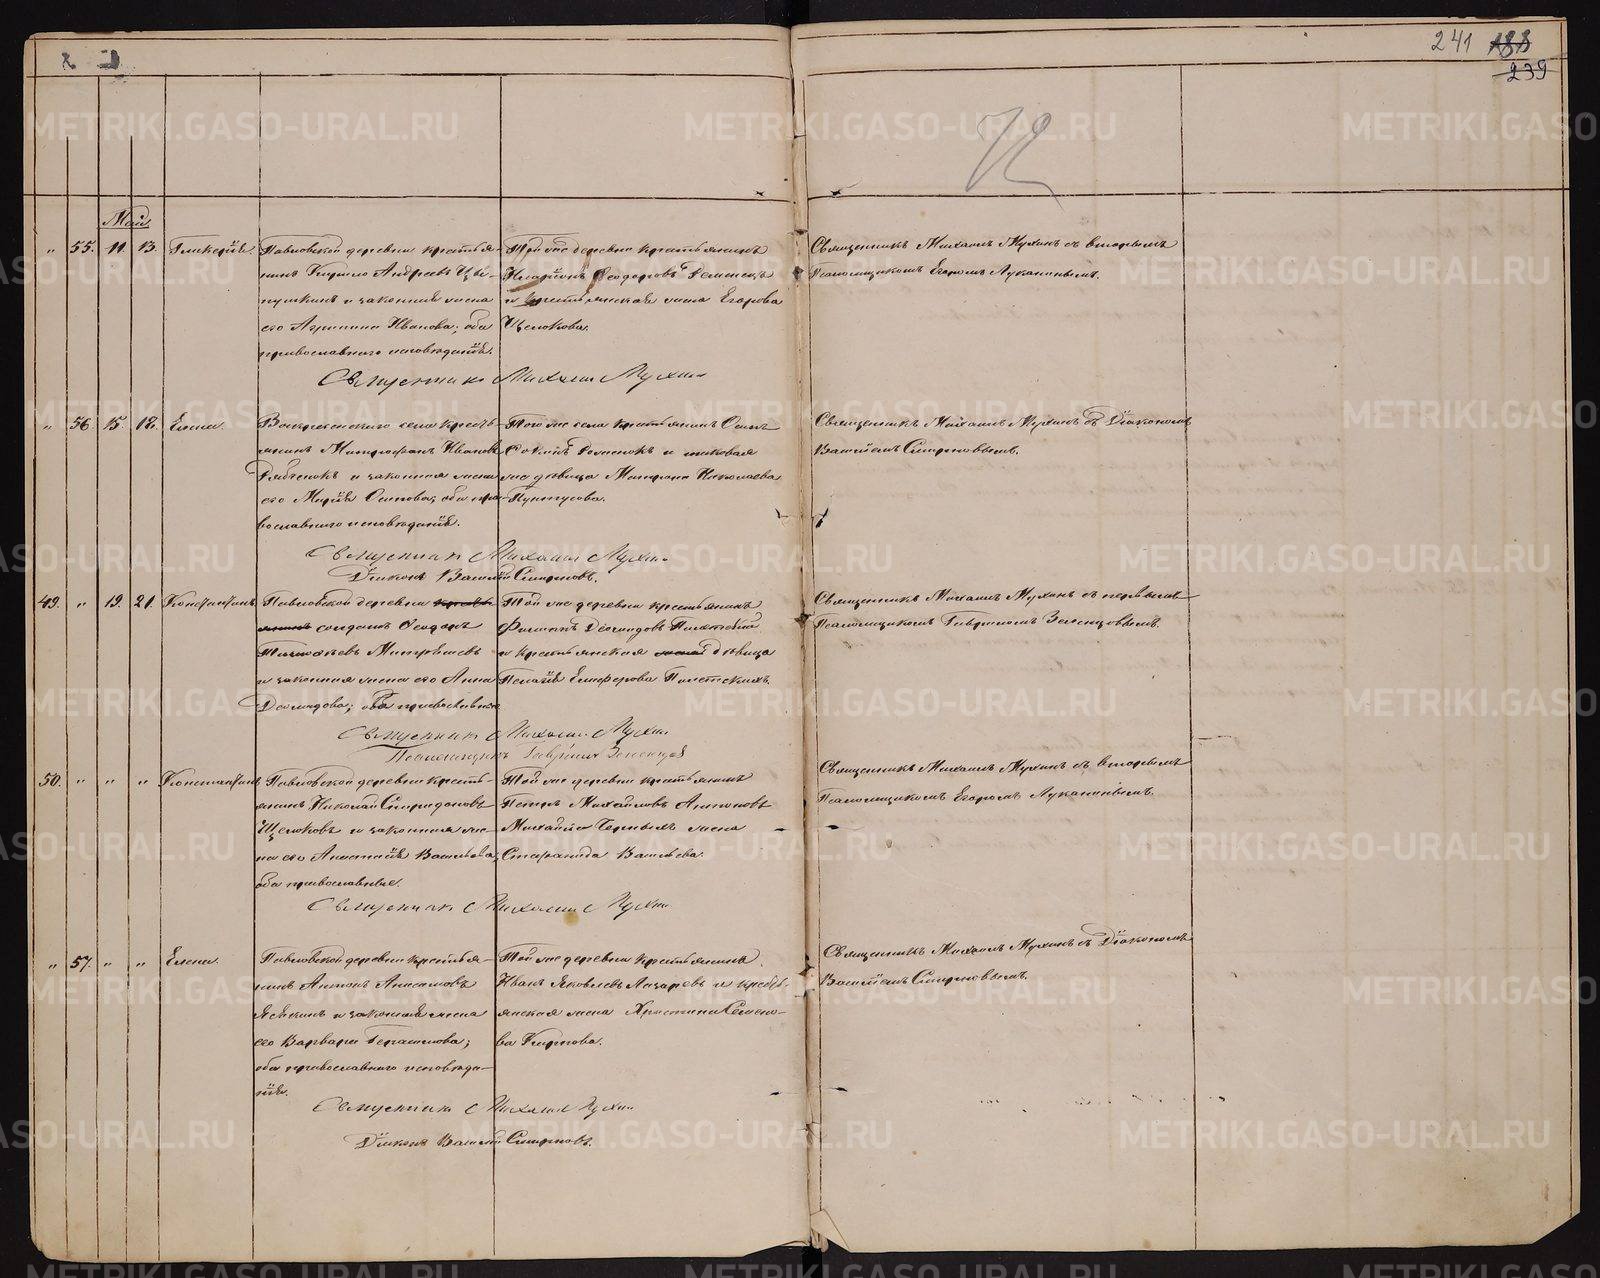 241 188
239
Май
" 55. 11. 13. Гликерія.
Павловской деревни крестья-
нинъ Кирило Андреевъ
и законная жена
его Агрипина Иванова; оба
православнаго исповѣданія.
Той же деревни крестьянинъ
Иларіонъ Ѳеодоровъ
и крестьянская жена Егорова
Щелокова.
Священникъ Михаилъ Мухинъ съ вторымъ
Псаломщикомъ Егоромъ Луканинымъ.
Священникъ Михаилъ Мухинъ
" 56 15. 18. Елена.
Воскресенскаго села кресть-
янинъ Митрофанъ Ивановъ
и законная жена
его Марія Осипова; оба пра-
вославнаго исповѣданія.
Того же села крестьянинъ
и таковая
же дѣвица Матрона Николаева
Священникъ Михаилъ Мухинъ съ Діакономъ
Василіемъ Смирновымъ.
Священникъ Михаилъ Мухинъ
Діаконъ Василій Смирновъ.
49. " 19. 21. Константинъ
Павловской деревни
солдатъ Ѳеодоръ
и законная жена его Анна
Деомидова; оба православные
Той же деревни крестьянинъ
Филиппъ Деомидовъ
и крестьянская дѣвица
Пелагія
Священникъ Михаилъ Мухинъ съ первымъ
Псаломщикомъ Гавріиломъ Зеленцовымъ.
Священникъ Михаилъ Мухинъ
Псаломщикъ Гавріилъ Зеленцовъ
50. " " " Константинъ
Павловской деревни кресть-
янинъ Николай Спиридоновъ
Щелоковъ и законная же-
на его Анастасія Васильева;
оба православные.
Той же деревни крестьянинъ
Петръ Михайловъ Антоновъ
Михайла Черныхъ жена
Степанида Васильева.
Священникъ Михаилъ Мухинъ съ вторымъ
Псаломщикомъ Егоромъ Луканинымъ.
Священникъ Михаилъ Мухинъ
" 57. " " Елена.
Павловской деревни крестья-
нинъ Антонъ Анисимовъ
и законная жена
его Варвара Герасимова;
оба православнаго исповѣда-
нія.
Той же деревни крестьянинъ
Иванъ Яковлевъ Лазаревъ и кресть-
янская жена Христина Семено-
ва Кирпова.
Священникъ Михаилъ Мухинъ съ Діакономъ
Василіемъ Смирновымъ.
Священникъ Михаилъ Мухинъ
Діаконъ Василій Смирновъ.
METRIKI.GASO-URAL.RU